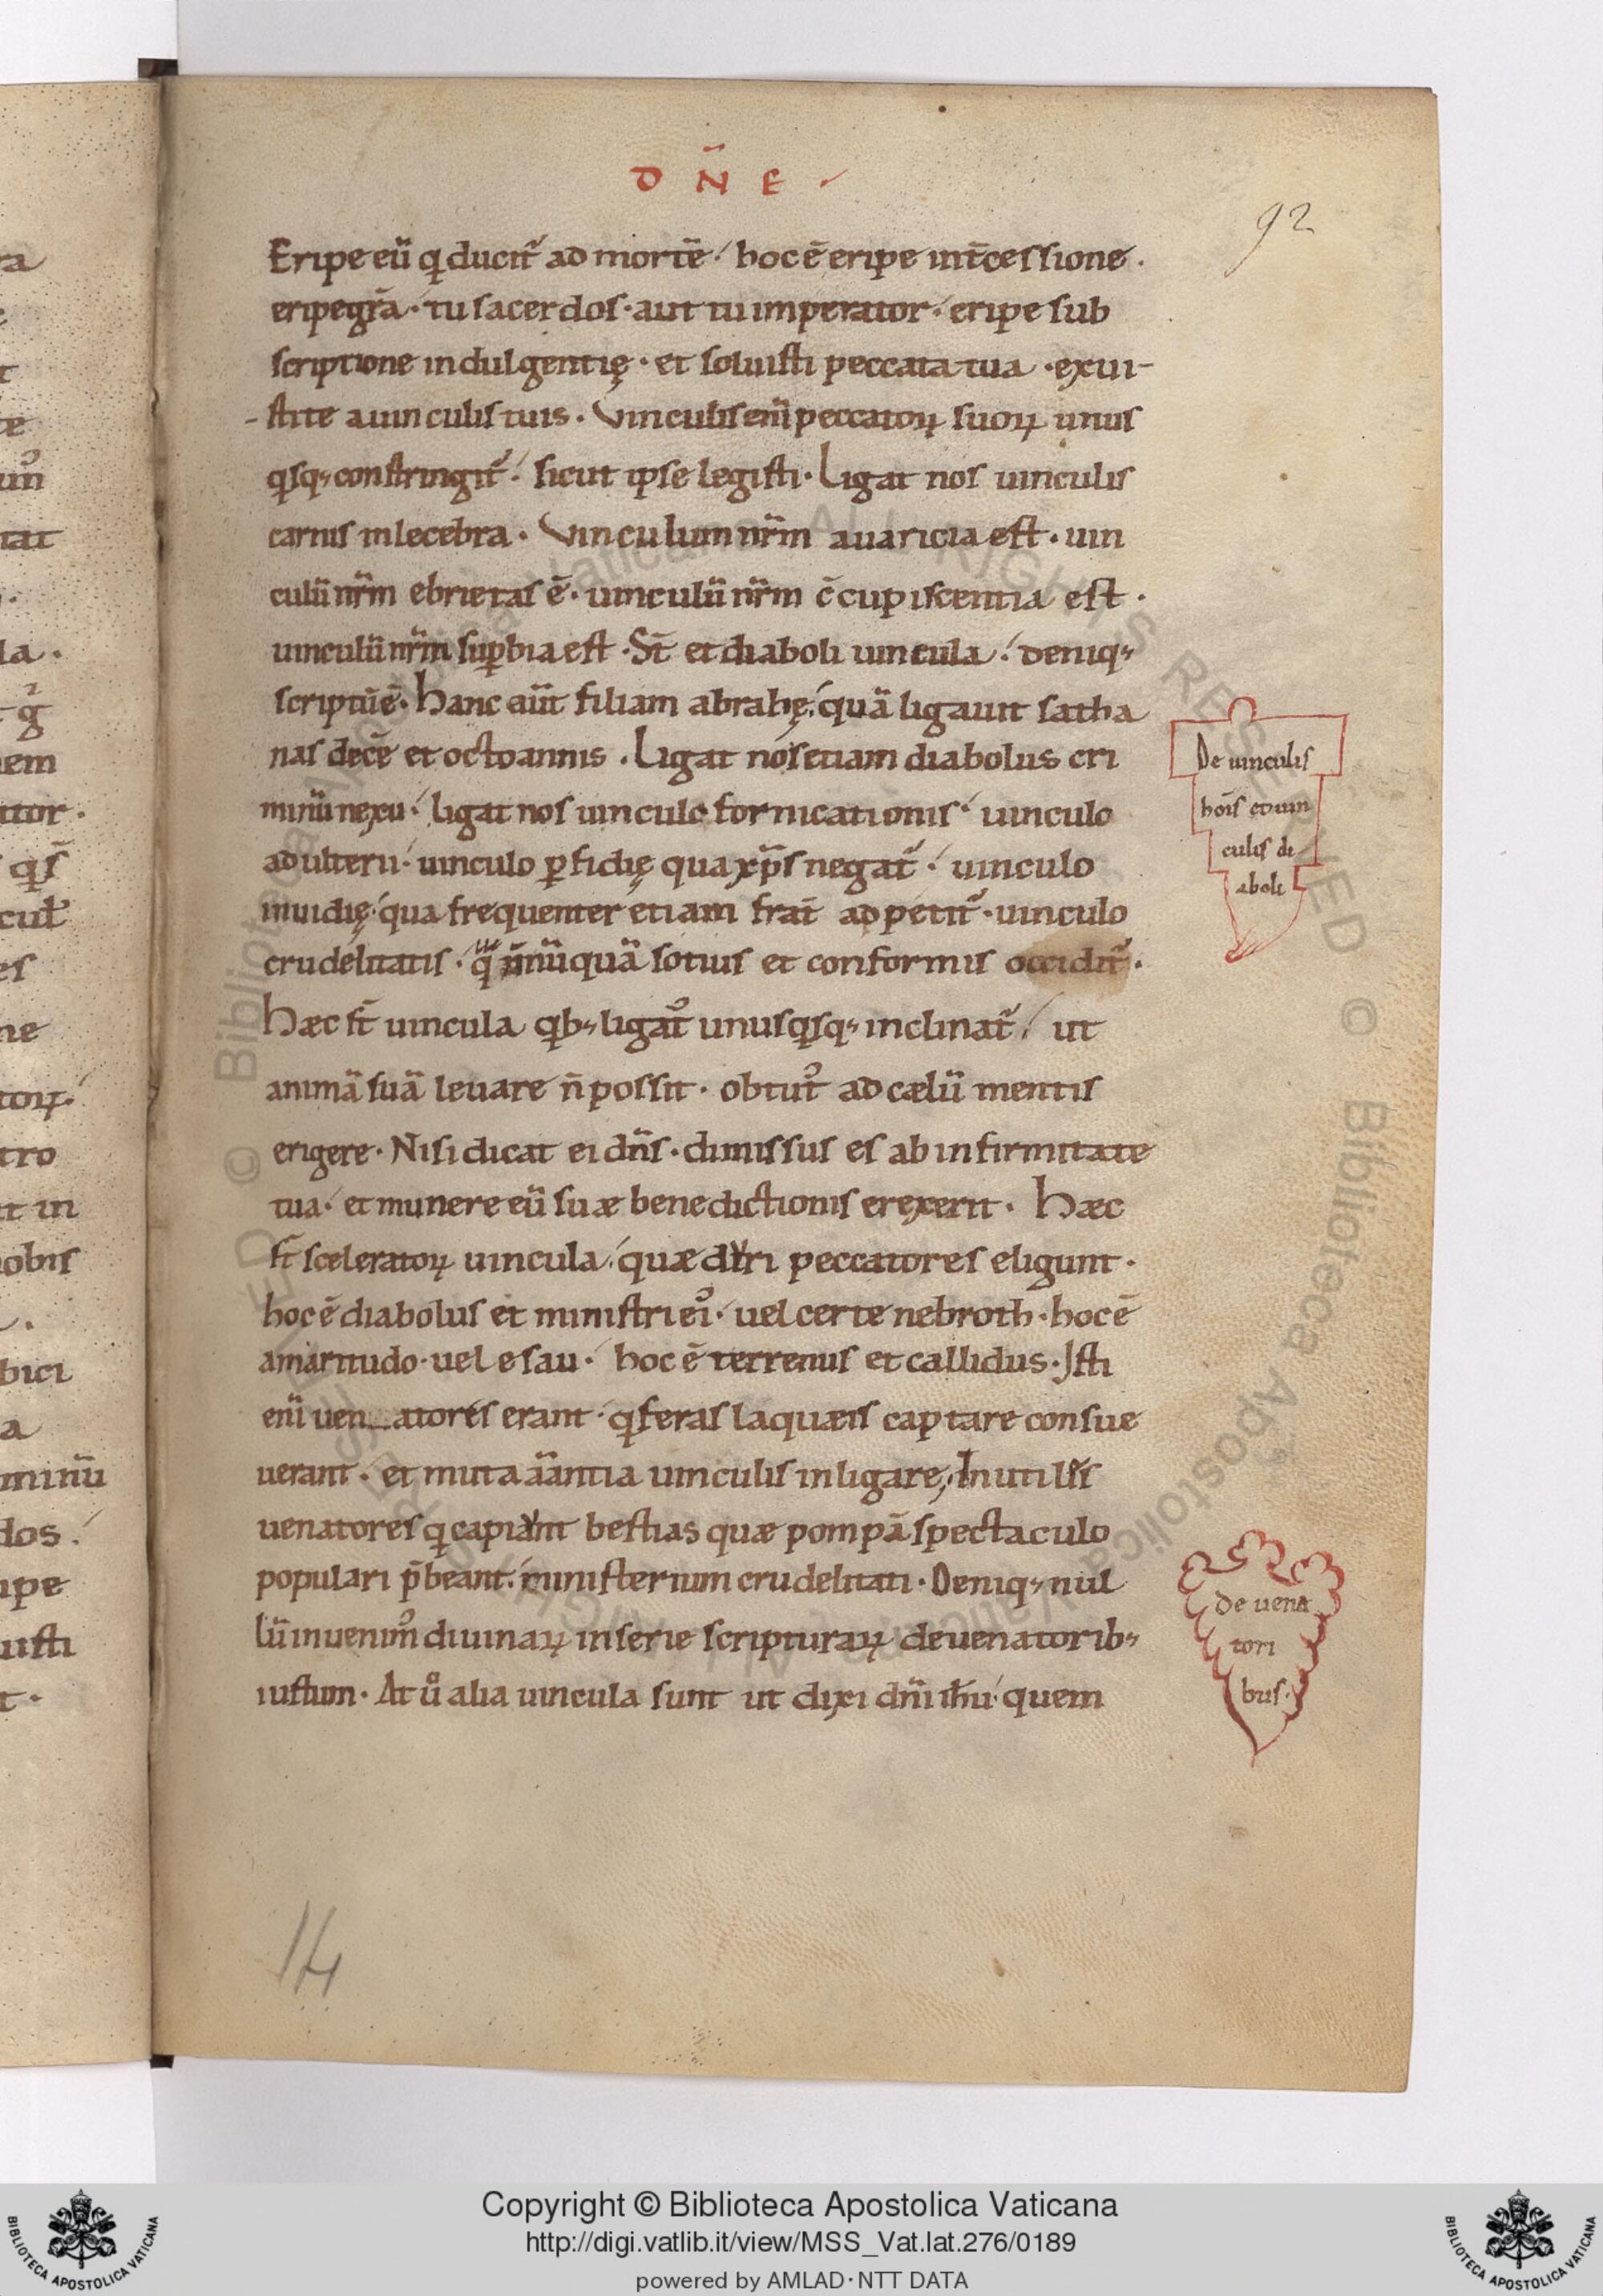 DÑE
92
Eripe eū q ducit᷑ ad mortē hoc ē eripe int̄cessione.
eripe gr̄a. tu sacerdos. aut tu imperator. eripe sub
scriptione indulgentię. et soluisti peccata tua. exui-
-sti te a uinculis tuis. Vinculis enī peccatoꝝ suoꝝ unus
qsq; constringit᷑. sicut ipse legisti. Ligat nos uinculis
carnis inlecebra. Vinculum nr̄m auaricia est. uin
culū nr̄m ebrietas ē. uinculū nr̄m c̄cupiscentia est.
uinculū nr̄m suꝑbia est. St̄ et diaboli uincula. deniq;
scriptū ē. Hanc aūt filiam abrahę. quā ligauit satha
nas decē et octo annis. Ligat nos etiam diabolus cri
minū nexu. ligat nos uinculo fornicationis. uinculo
adulterii. uinculo ꝑfidię qua xp̄s negat᷑. uinculo
inuidię. qua frequenter etiam frat̄ adpetit᷑. uinculo
crudelitatis. nūquā sotius et conformis occidit᷑.
Hæc st̄ uincula qb; ligat᷑ unusqsq; inclinat᷑. ut
animā suā leuare n̄ possit. obtut᷒ ad cælū mentis
erigere. Nisi dicat ei dn̄s. dimissus es ab infirmitate
tua. et munere eū suæ benedictionis erexerit. Hæc
st̄ sceleratoꝝ uincula. quæ diri peccatores eligunt.
hoc ē diabolus et ministri ei᷒. uel certe nebroth. hoc ē
amaritudo. uel esau. hoc ē terrenus et callidus. Isti
enī uen atores erant. q feras laqueis captare consue
uerant. et muta āantia uinculis inligare, Inutiles
uenatores q capiant bestias quæ pompā spectaculo
populari p̄beant. ministerium crudelitati. Deniq; nul
lū inuenim᷒ diuinaꝝ in serie scripturaꝝ de uenatorib;
iustum. At ů alia uincula sunt ut dixi dn̄i ih̄u quem
De uinculis
hoīs et uin
culis di
aboli
de uena
tori
bus.
14
ALL RIGHTS RESERVED © Biblioteca Apostolica Vaticana
Copyright © Biblioteca Apostolica Vaticana
http://digi.vatlib.it/view/MSS_Vat.lat.276/0189
powered by AMLAD·NTT DATA
BIBLIOTECA APOSTOLICA VATICANA
BIBLIOTECA APOSTOLICA VATICANA